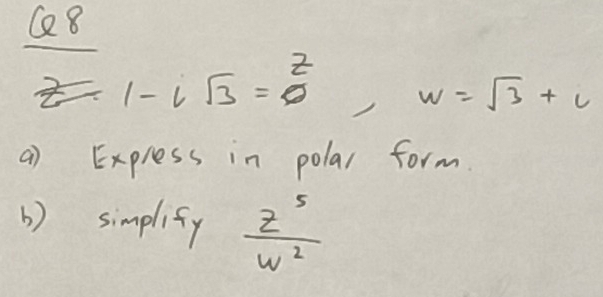 Q8
1 - i √3 = z , w = √3 + i
a) Express in polar form.
b) simplify z^5 / w^2